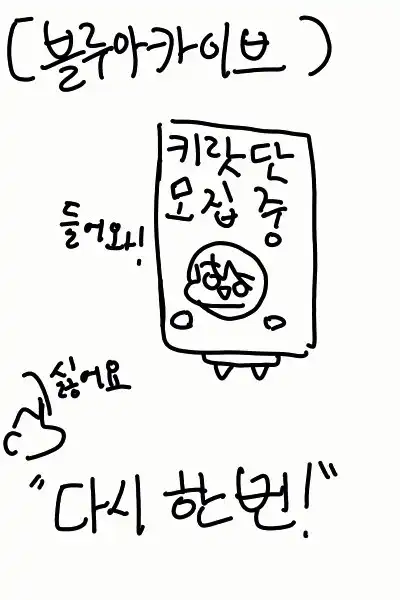 (블루아카이브)
키랏단
모집 중
들어와!
싫어요
"다시 한 번!"